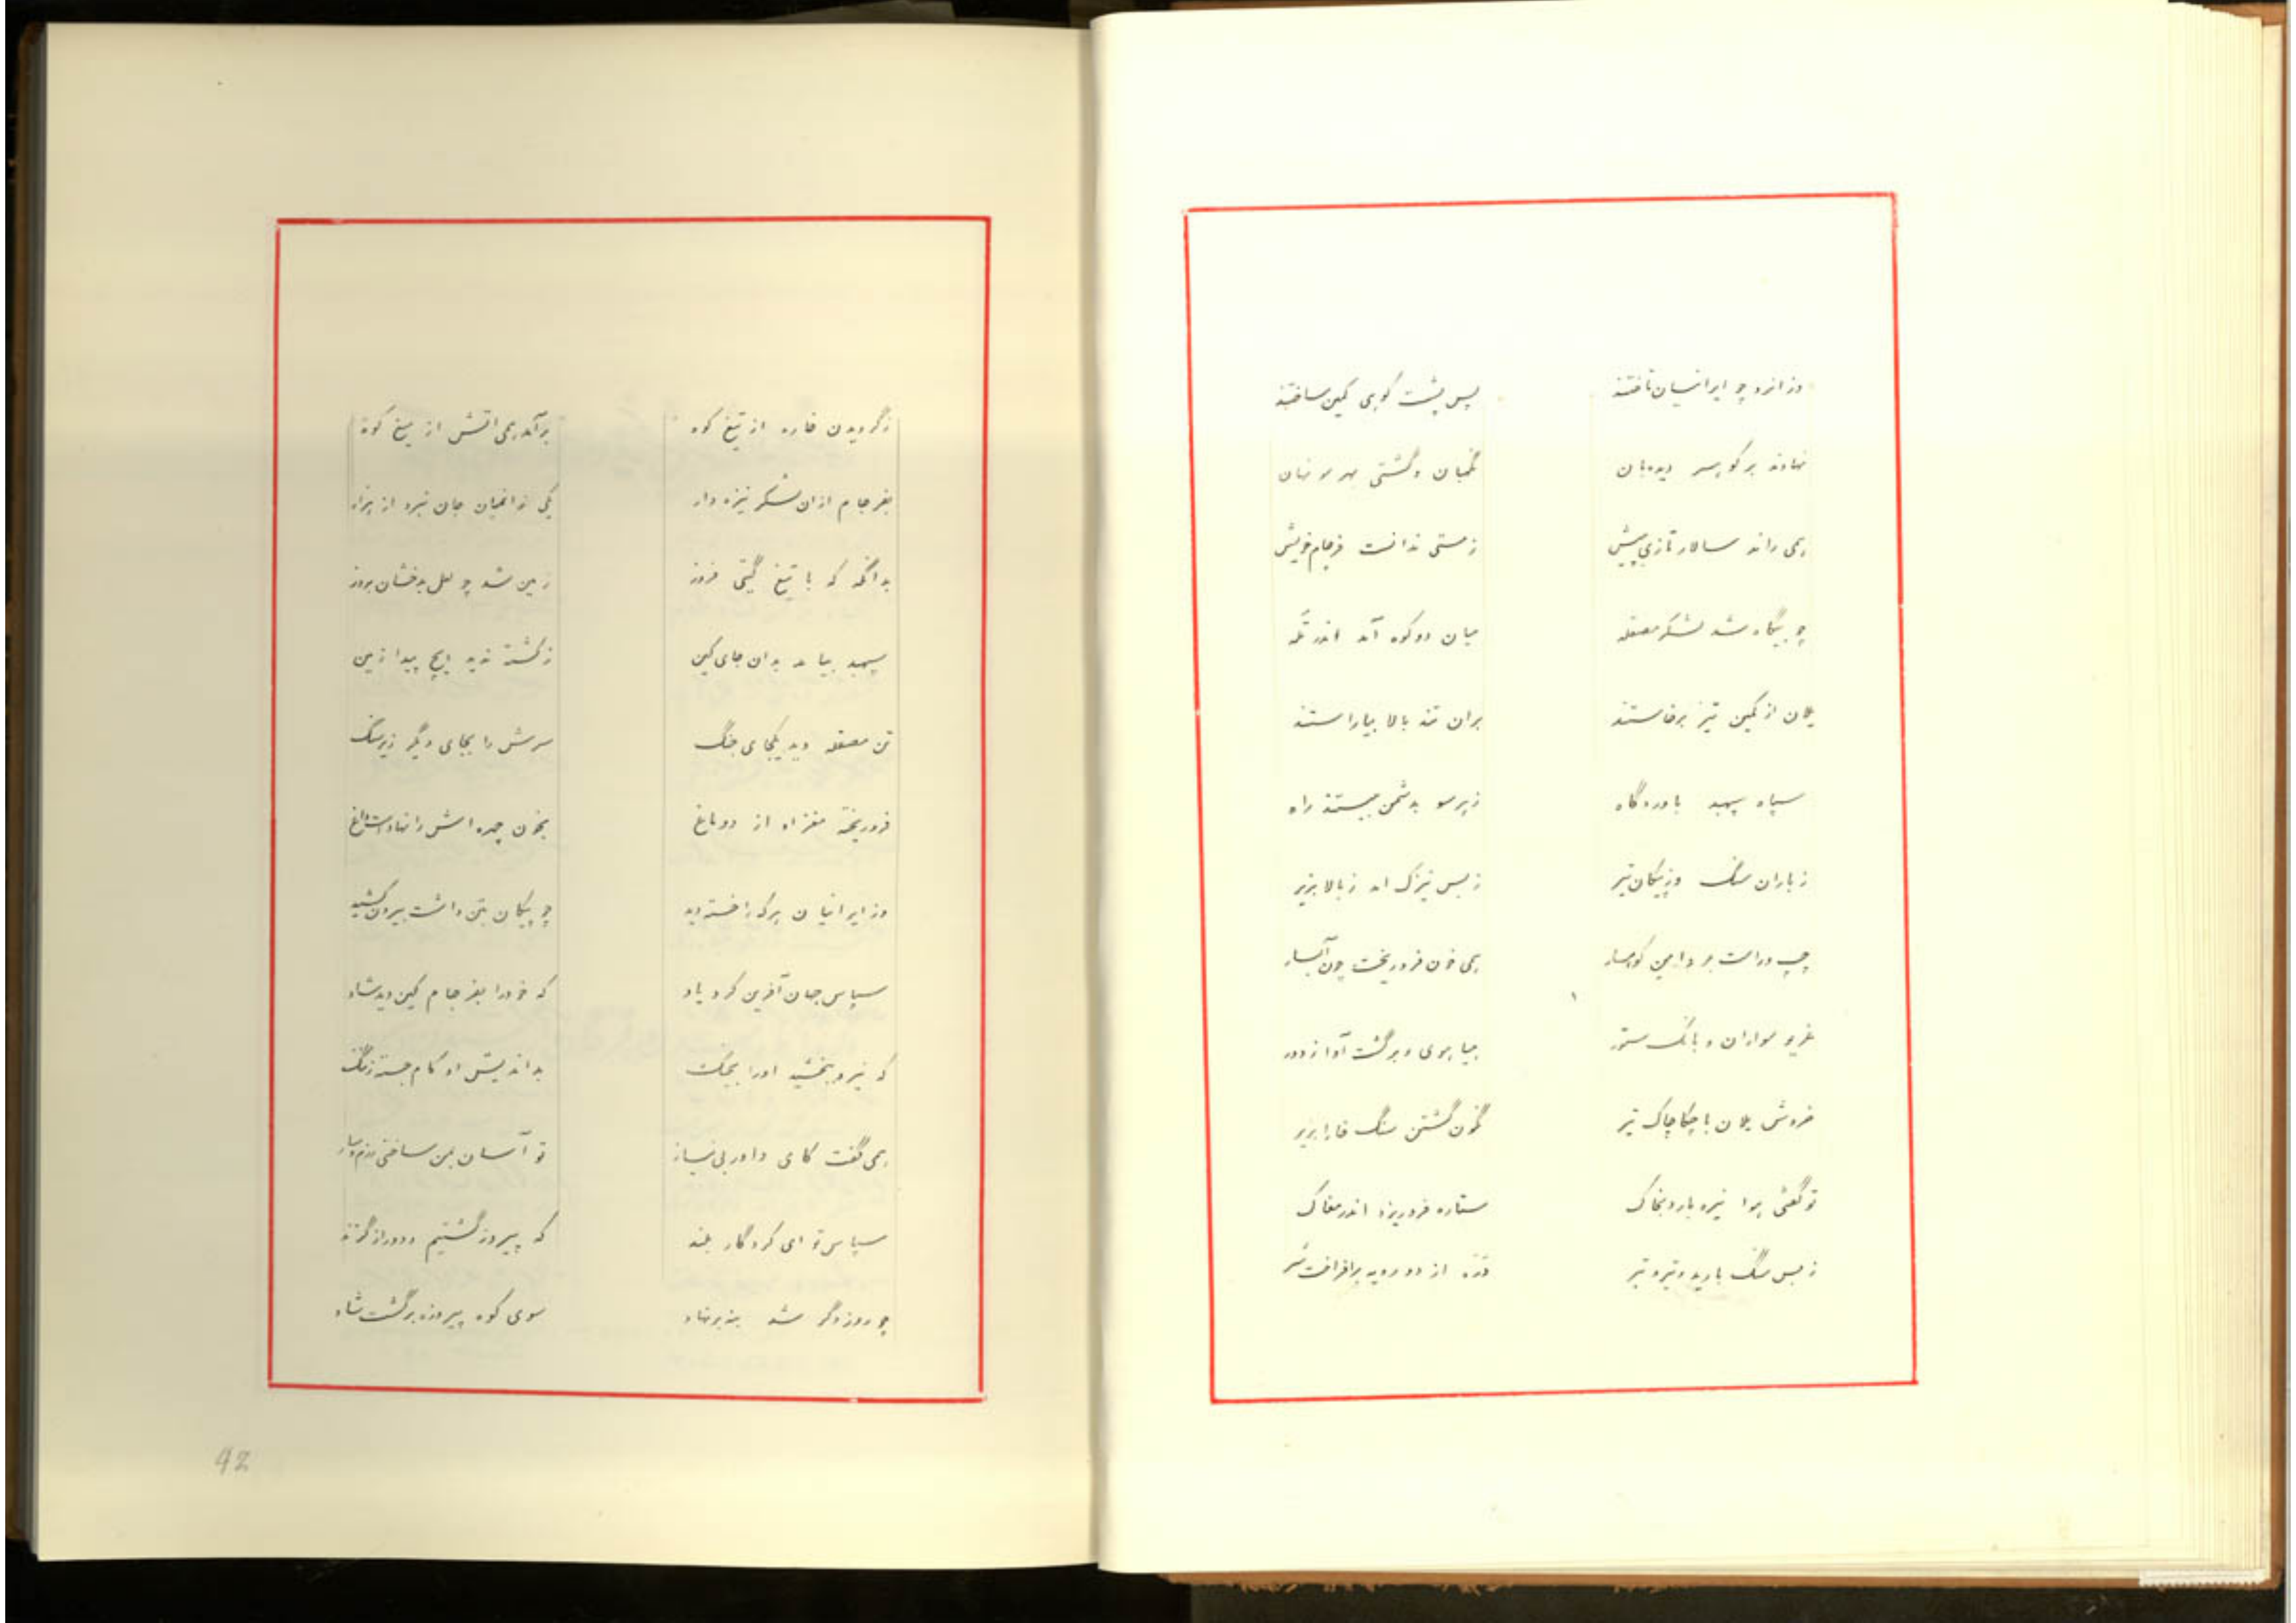 وزانرو چو ایرانسیان تاختند پس پشت کوهی کمین ساختند
نهادند بر کوهسر دیده‌بان نگهبان و گشتی بهر سو نهان
همی راند سالار تازی به پیش ز مستی ندانست فرجام خویش
چو بیگاه شد لشکر مصقله میان دو کوه آمد اندر تله
یلان از کمین تیز برخاستند بران تند بالا بیاراستند
سپاه سپهبد باوردگاه ز هر سو بدشمن ببستند راه
ز باران سنگ و ز پیکان تیر ز بس نیزک آمد ز بالا بزیر
چپ و راست بر دامن کوهسار همی خون فرو ریخت چون آبشار
غریو سواران و بانگ ستور هیاهوی و برگشت آوا ز دور
خروش یلان با چکاچاک تیر نگون گشتن سنگ خارا بزیر
تو گفتی هوا نیزه بارد بخاک ستاره فرو ریزد اندر مغاک
ز بس سنگ بارید و تیر و تبر از دو رویه برافراخت سر
ز گردیدن خاره از تیغ کوه برآمد همی آتش از تیغ کوه
بفرجام ازان لشکر نیزه دار یکی زانمیان جان نبرد از هزار
بدانگه که با تیغ گیتی فروز زمین شد چو لعل بدخشان بروز
سپهبد بیامد بدان جای کین ز کشته ندید ایچ پیدا زمین
تن مصقله دید یکجای جنگ سرش را بجای دگر زیر سنگ
فرو ریخته مغز او از دماغ بخون چهره اش را نهادست داغ
وز ایرانیان هر که را خسته دید چو پیکان بتن داشت بیرون کشید
سپاس جهان آفرین کرد یاد که خود را بفرجام کین دید شاد
که نیرو ببخشید او را بجنگ بداندیش او کام جست
همی گفت کای داور بی نیاز تو آسان بمن ساختی
سپاس تو ای کردگار بلند که پیروز گشتیم و دور از گزند
چو روز دگر شد بنه بر نهاد سوی کوه پیروزه برگشت شاد
42